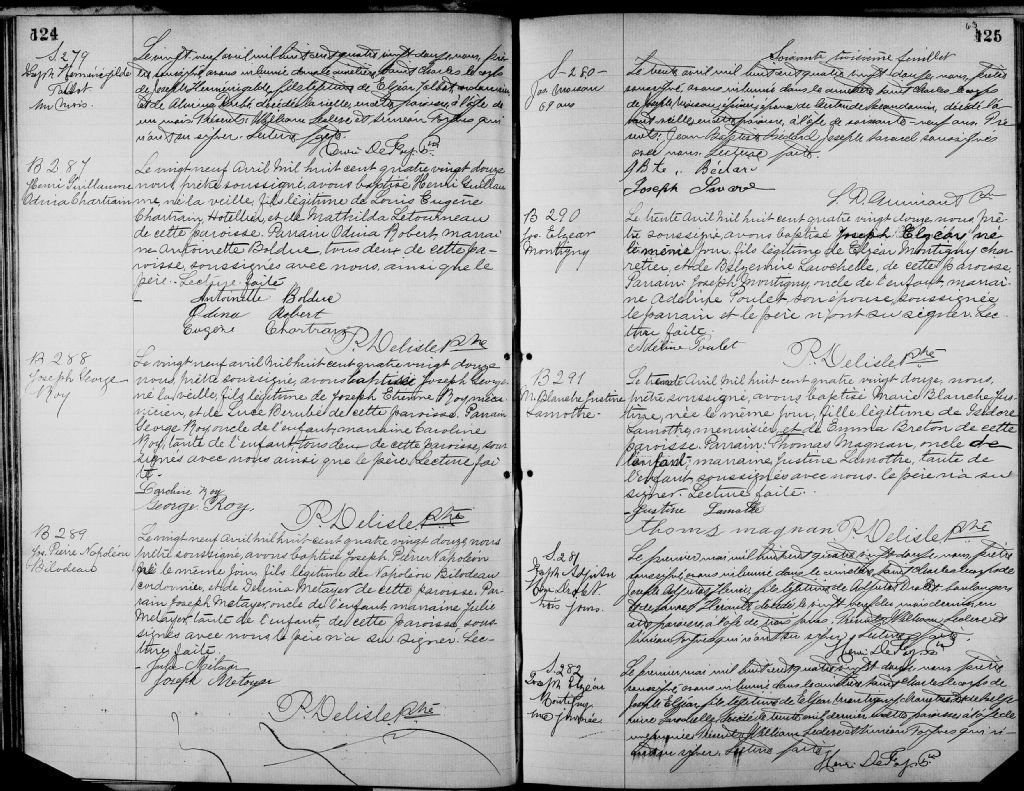 124
S. 279
Joseph Herménégilde
Talbot
un mois.
Le vingt neuf avril mil huit cent quatre vingt douze, nous, prêtre
soussigné, avons inhumé dans le cimetière Saint Charles le corps
de Joseph Herménégilde, fils légitime de Elzéar Talbot
et de décédé la veille, en cette paroisse, à l'âge de
un mois. Présents: William Leclerc et Siméon qui
n'ont su signer. Lecture faite.
Henri DeFoy, Ptre
B 287
Henri Guillaume
Odina Chartrain
Le vingt neuf Avril Mil huit cent quatre vingt douze
nous, prêtre soussigné, avons baptisé Henri Guillau
me, né la veille, fils légitime de Louis Eugène
Chartrain, Hôtellier, et de Mathilda Letourneau
de cette paroisse. Parrain Odina Robert marrai
ne Antoinette Bolduc, tous deux de cette pa-
roisse, soussignés avec nous, ainsi que le
père. Lecture faite
Antoinette Bolduc
Odina Robert
Eugène Chartrain
P. Delisle Ptre
B 288
Joseph George
Roy
Le vingt neuf avril Mil huit cent quatre vingt douze
nous, prêtre soussigné, avons baptisé Joseph George,
né la veille, fils légitime de Joseph Etienne Roy, méca-
nicien, et de Luce Berubé de cette paroisse. Parrain
George Roy oncle de l'enfant, marraine Caroline
Roy, tante de l'enfant, tous deux de cette paroisse, sous-
signés avec nous ainsi que le père. Lecture fai
te
Caroline Roy
George Roy
P. Delisle Ptre
B 289
Jos. Pierre Napoléon
Bilodeau
Le vingt neuf Avril mil huit cent quatre vingt douze, nous
prêtre soussigné, avons baptisé Joseph, Pierre Napoléon
né le même jour, fils légitime de Napoléon Bilodeau
cordonnier, et de Delima Metayer de cette paroisse. Par-
rain Joseph Metayer, oncle de l'enfant, marraine Julie
Metayer, tante de l'enfant, de cette paroisse, sous-
signés avec nous, le père n'a su signer. Lec-
ture faite
Julie Métayer
Joseph Metayer
P. Delisle Ptre
63
125
Soixante troisième feuillet
S-280-
Jos.
69 ans
Le trente avril, mil huit cent quatre vingt douze, nous, prêtre
soussigné, avons inhumé dans le cimetière Saint Charles le corps
de Joseph époux de décédé l'a-
vant veille, en cette paroisse, à l'âge de soixante-neuf ans. Pré-
sents: Jean Baptiste Bédard, Joseph Savard soussignés
avec nous. Lecture faite.
J Bte Bédard
Joseph Savard
B 290
Jos. Elzéar
Montigny
Le trente Avril mil huit cent quatre vingt douze, nous, prê-
tre soussigné, avons baptisé Joseph Elzéar né
le même jour, fils légitime de Elzéar Montigny, char-
retier, et de Larochelle, de cette paroisse,
Parrain: Joseph Montigny, oncle de l'enfant, marrai-
ne Adeline Poulet, son épouse, soussignée
le parrain et le père n'ont su signer. Lec-
ture faite.
Adeline Poulet
P. Delisle Ptre
B 291
M. Blanche Justine
Lamothe
Le trente Avril mil huit cent quatre vingt douze, nous,
prêtre soussigné, avons baptisé Marie Blanche, Jus-
tine, née le même jour, fille légitime de Isidore
Lamothe, menuisier, et de Emma Breton de cette
paroisse. Parrain: Thomas Magnan, oncle de
l'enfant; marraine Justine Lamothe, tante de
l'enfant soussignés avec nous. le père n'a su
signer. Lecture faite.
Justine Lamothe
Thoms magnan P. Delisle Ptre
S. 281
Joseph Adjutor
trois jours.
Le premier mai mil huit cent quatre vingt douze, nous, prêtre
soussigné, avons inhumé dans le cimetière Saint Charles le corps de
Joseph Adjutor Henri, fils légitime de Adjutor boulanger
et de décédé le en
cette paroisse, à l'âge de trois jours. Présents: William Leclerc et
Siméon qui n'ont su signer. Lecture faite.
Henri DeFoy, Ptre
S. 282
Joseph Elzéar
Montigny
une journée.
Le premier mai mil huit cent quatre vingt douze, nous, prêtre
soussigné, avons inhumé dans le cimetière Saint Charles le corps de
Joseph Elzéar, fils légitime de Elzéar Montigny, charretier et de
Larochelle, décédé le trente avril dernier en cette paroisse, à l'âge de
une journée. Présents: William Leclerc et Siméon qui n'
ont su signer. Lecture faite.
Henri DeFoy, Ptre